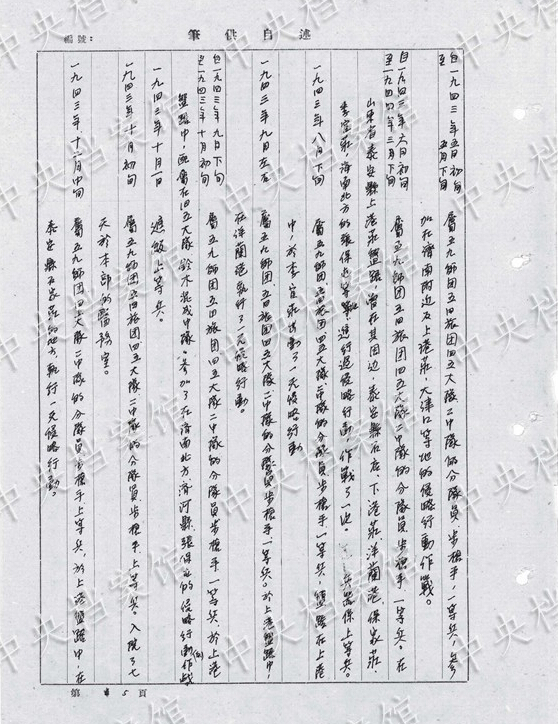 述自供筆
編號：
自一九四三年五月初旬
至　　　　五月下旬
屬五九師团五四旅团四五大隊二中隊的分隊員、步槍手、一等兵，參
加在濟南附近及上港莊，大津口等地的侵略行動作戰。
自一九四三年六月初旬
至一九四 年三月下旬
屬五九師团五四旅团四五大隊二中隊的分隊員步槍手一等兵。在
山東省泰安縣上港莊盤踞，曾在其周边，泰安縣石店、下港莊、洋蘭港、保家莊、
李宜莊，濟南北方的張保 等 進行过侵略行動作戰了一 兵器係上等兵。
一九四三年八月下旬
屬五九師团五四旅团四五大隊二中隊的分隊員步槍手一等兵，盤踞在上港
中，於李宜莊 動了一天侵略行動
一九四三年九月左右
屬五九師团、五四旅团四五大隊二中隊的分隊員步槍手一等兵於上港盤踞中，
在保蘭港執行了一天侵略行動。
自一九四三年九月下旬
至一九四三年十月初旬
屬五九師团五四旅团四五大隊二中隊的分隊員步槍手一等兵，於上港
盤踞中，配屬在四五大隊鈴木混成中隊。參加了在濟南北方濟河縣張保 的侵略行動作戰
一九四三年十月一日
進級上等兵。
一九四三年十月初旬
屬五九師团五四旅团四五大隊二中隊的分隊員，步槍手、上等兵。入院了七
天於本部的醫務室。
一九四三年十一月中旬
屬五九師团五四旅团四五大隊二中隊的分隊員，步槍手上等兵，於上港盤踞中，在
泰安縣 家莊的地方執行一天侵略行動。
第 5 頁
中央档案馆